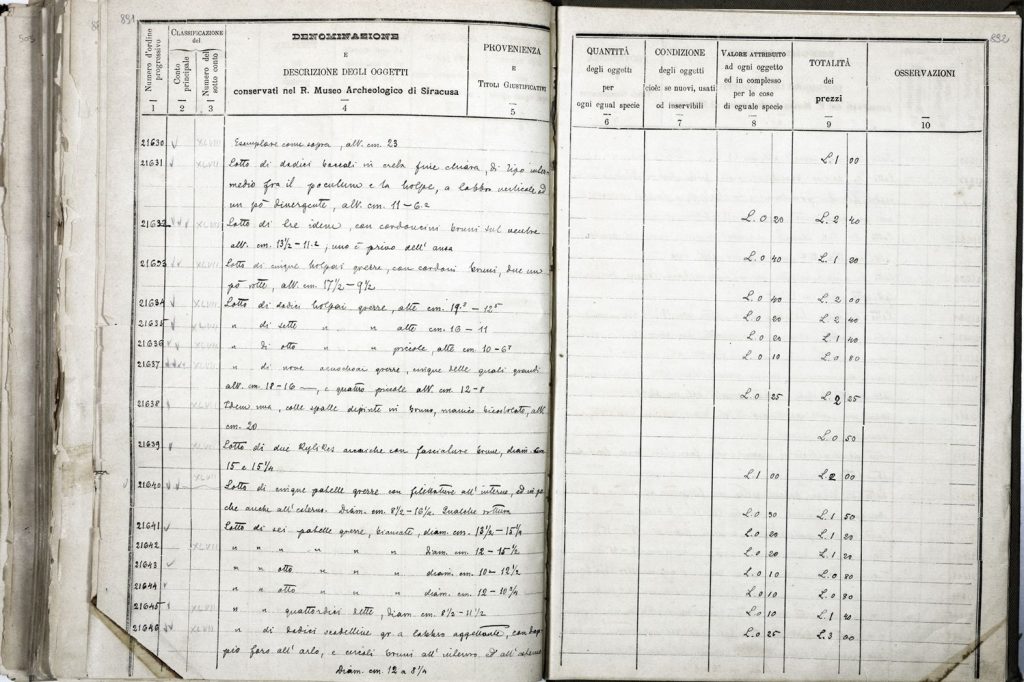 891
Numero d'ordine progressivo
CLASSIFICAZIONE
del
Conto principale
Numero del sotto conto
DENOMINAZIONE
E
DESCRIZIONE DEGLI OGGETTI
conservati nel R. Museo Archeologico di Siracusa
PROVENIENZA
E
TITOLI GIUSTIFICATIVI
1 2 3 4 5
21630 XLVII Esemplare come sopra, alt. cm. 23
21631 XLVII Lotto di dodici boccali in creta fine chiara, di tipo inter-
medio fra il poculum e la holpe, a labbro verticale ed
un pò divergente, alt. cm. 11 - 6.2
21632 XLVII Lotto di tre idem, con cordoncini bruni sul ventre
alt. cm. 13½ - 11.2, uno è privo dell' ansa
21633 XLVII Lotto di cinque holpai grezze, con cordoni bruni, due un
pò rotte, alt. cm. 17½ - 9½
21634 XLVII Lotto di dodici holpai grezze, alte cm. 19 - 12
21635 XLVII " di sette " " alte cm. 16 - 11
21636 XLVII " di otto " " piccole, alte cm. 10 - 6
21637 XLVII " di nove grezze, cinque delle quali grandi
alt. cm. 18 - 16, e quattro piccole alt. cm. 12 - 8
21638 XLVII Idem una, colle spalle dipinte in bruno, manico alt.
cm. 20
21639 XLVII Lotto di due Kylikes arcaiche con fasciature brune, diam. cm.
15 e 15¼
21640 XLVII Lotto di cinque patelle grezze con filettature all' interno, ed
che anche all' esterno. Diam. cm. 8½ - 16½. Qualche rottura
21641 Lotto di sei patelle grezze, biancate, diam. cm. 13½ - 15¼
21642 XLVII " " " " " " diam. cm. 12 - 15½
21643 " " otto " " " diam. cm. 10 - 12½
21644 " " otto " " " diam. cm. 12 - 10¾
21645 XLVII " " quattordici dette, diam. cm. 8½ - 11½
21646 XLVII " di dodici scodelline gr. a labbro aggettante, con dop-
pio foro all' orlo, e cerchi bruni all' interno ed all' esterno
Diam. cm. 12 a 8¼
892
QUANTITÀ
degli oggetti
per
ogni egual specie
CONDIZIONE
degli oggetti
(cioè: se nuovi, usati
od inservibili
VALORE ATTRIBUITO
ad ogni oggetto
ed in complesso
per le cose
di eguale specie
TOTALITÀ
dei
prezzi
OSSERVAZIONI
6 7 8 9 10
L. 1 00
L. 0 20 L. 2 40
L. 0 40 L. 1 20
L. 0 40 L. 2 00
L. 0 20 L. 2 40
L. 0 20 L. 1 40
L. 0 10 L. 0 80
L. 0 25 L. 2 25
L. 0 50
L. 1 00 L. 2 00
L. 0 30 L. 1 50
L. 0 20 L. 1 20
L. 0 20 L. 1 20
L. 0 10 L. 0 80
L. 0 10 L. 0 80
L. 0 10 L. 1 40
L. 0 25 L. 3 00